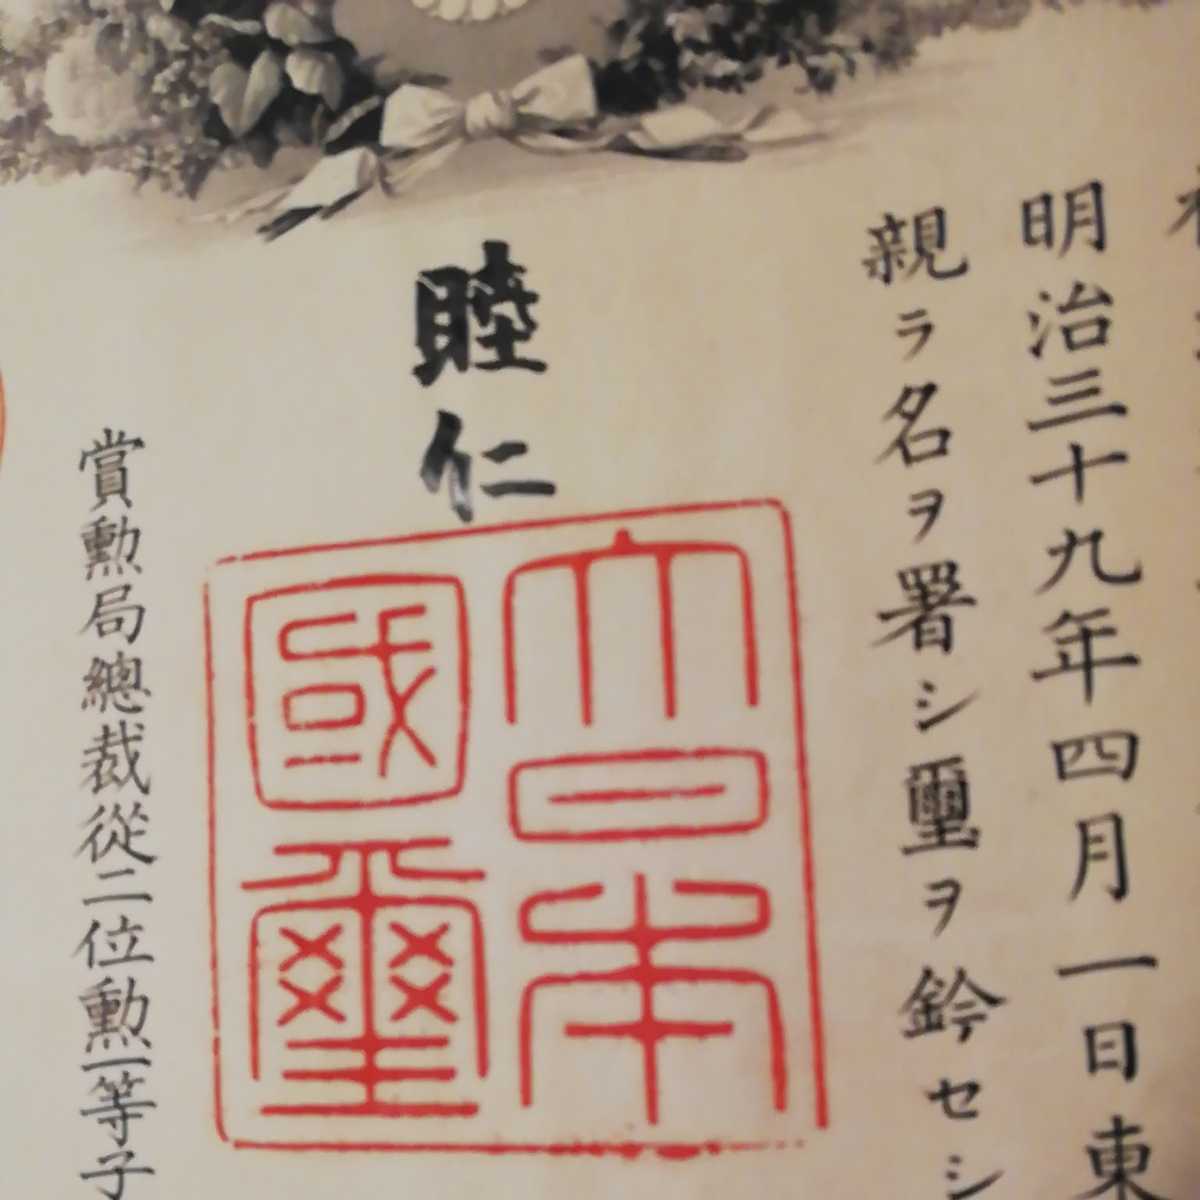 明治三十九年四月一日東
親ラ名ヲ署シ璽ヲ鈐セシ
睦仁
大日本
國璽
賞勲局總裁從二位勲一等子